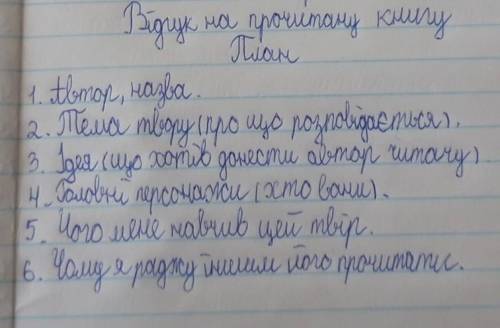 Відгук на прочитану книгу
План
1. Автор, назва.
2. Тема твору (про що розповідається).
3. Ідея (що хотів донести автор читачу)
4. Головні персонажи (хто вони).
5. Чого мене навчив цей твір.
6. Чому я раджу іншим його прочитати.